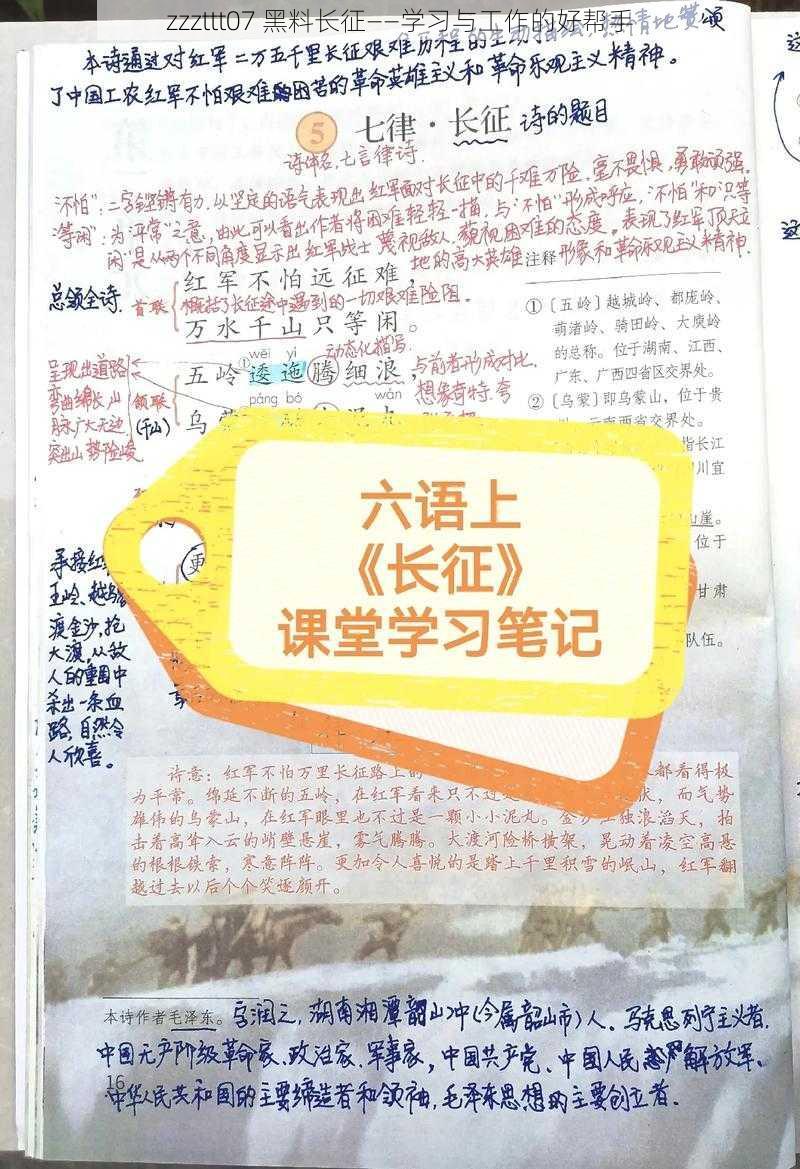 zzzttt07 黑料长征——学习与工作的好帮手
本诗通过对红军二万五千里长征艰难历程的生动描绘,热情地赞颂
了中国工农红军不怕艰难困苦的革命英雄主义和革命乐观主义精神。
5 七律·长征 诗的题目
诗体名,七言律诗.
“不怕”:二字铿锵有力,以坚定的语气表现出红军面对长征中的千难万险,毫不畏惧,勇敢顽强。
“等闲”:为“平常”之意,由此可以看出作者将困难轻轻一描,与“不怕”形成呼应,“不怕”和“只等
闲”是从两个不同角度显示出红军战士蔑视敌人,藐视困难的态度。表现了红军顶天立
地的高大英雄形象和革命乐观主义精神.
注释
总领全诗.
首联
红军不怕远征难,
概括了长征途中遇到的一切艰难险阻。
万水千山只等闲。
动态化描写.
wēi yí
五岭逶迤腾细浪,
páng bó wán
乌蒙
与前者形成对比,
想象奇特.夸
呈现出道路
弯曲绵长,山
脉广大无边
突出山势险峻
颔联
(千山)
①〔五岭〕越城岭、都庞岭、
萌渚岭、骑田岭、大庾岭
的总称。位于湖南、江西、
广东、广西四省区交界处。
②〔乌蒙〕即乌蒙山,位于贵
州、云南两省交界处。
指长江
川宜
山崖。
位于
甘肃
队伍。
更
承接红军
五岭、越乌蒙
渡金沙,抢
大渡,从敌
人的重围中
杀出一条血
路,自然令
人欣喜。
六语上
《长征》
课堂学习笔记
诗意:红军不怕万里长征路上的
都看得极
为平常。绵延不断的五岭,在红军看来只不过是
伏,而气势
雄伟的乌蒙山,在红军眼里也不过是一颗小小泥丸。金沙江浊浪滔天,拍
击着高耸入云的峭壁悬崖,雾气腾腾。大渡河险桥横架,晃动着凌空高悬
的根根铁索,寒意阵阵。更加令人喜悦的是踏上千里积雪的岷山,红军翻
越过去以后个个笑逐颜开。
本诗作者毛泽东。字润之,湖南湘潭韶山冲(今属韶山市)人。马克思列宁主义者.
中国无产阶级革命家、政治家、军事家,中国共产党、中国人民解放军、
中华人民共和国的主要缔造者和领袖,毛泽东思想的主要创立者。
16